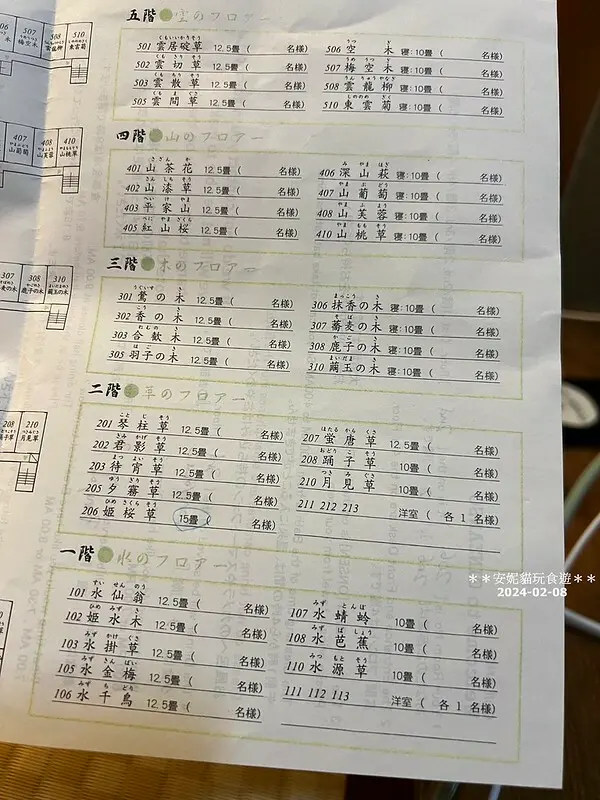 五階 空のフロアー
501 雲居碇草 12.5畳 ( 名様)
502 雲切草 12.5畳 ( 名様)
503 雲散草 12.5畳 ( 名様)
505 雲間草 12.5畳 ( 名様)
506 空木 寝:10畳 ( 名様)
507 梅空木 寝:10畳 ( 名様)
508 雲龍柳 寝:10畳 ( 名様)
510 東雲菊 寝:10畳 ( 名様)
四階 山のフロアー
401 山茶花 12.5畳 ( 名様)
402 山漆草 12.5畳 ( 名様)
403 平家山 12.5畳 ( 名様)
405 紅山桜 12.5畳 ( 名様)
406 深山萩 寝:10畳 ( 名様)
407 山葡萄 寝:10畳 ( 名様)
408 山芙蓉 寝:10畳 ( 名様)
410 山桃草 寝:10畳 ( 名様)
三階 木のフロアー
301 鶯の木 12.5畳 ( 名様)
302 香の木 12.5畳 ( 名様)
303 合歓木 12.5畳 ( 名様)
305 羽子の木 12.5畳 ( 名様)
306 抹香の木 寝:10畳 ( 名様)
307 蕎麦の木 寝:10畳 ( 名様)
308 鹿子の木 寝:10畳 ( 名様)
310 繭玉の木 寝:10畳 ( 名様)
二階 草のフロアー
201 琴柱草 12.5畳 ( 名様)
202 君影草 12.5畳 ( 名様)
203 待宵草 12.5畳 ( 名様)
205 夕霧草 12.5畳 ( 名様)
206 姫桜草 15畳 ( 名様)
207 蛍唐草 12.5畳 ( 名様)
208 踊子草 10畳 ( 名様)
210 月見草 10畳 ( 名様)
211 212 213 洋室 ( 各1名様)
一階 水のフロアー
101 水仙翁 12.5畳 ( 名様)
102 姫水木 12.5畳 ( 名様)
103 水掛草 12.5畳 ( 名様)
105 水金梅 12.5畳 ( 名様)
106 水千鳥 12.5畳 ( 名様)
107 水蜻蛉 10畳 ( 名様)
108 水芭蕉 10畳 ( 名様)
110 水源草 10畳 ( 名様)
111 112 113 洋室 ( 各1名様)
507 梅空木
508 雲龍柳
510 東雲菊
407 山葡萄
408 山芙蓉
410 山桃草
307
308 鹿子の木
310 繭玉の木
208
210 月見草
**安妮貓玩食遊**
2024-02-08